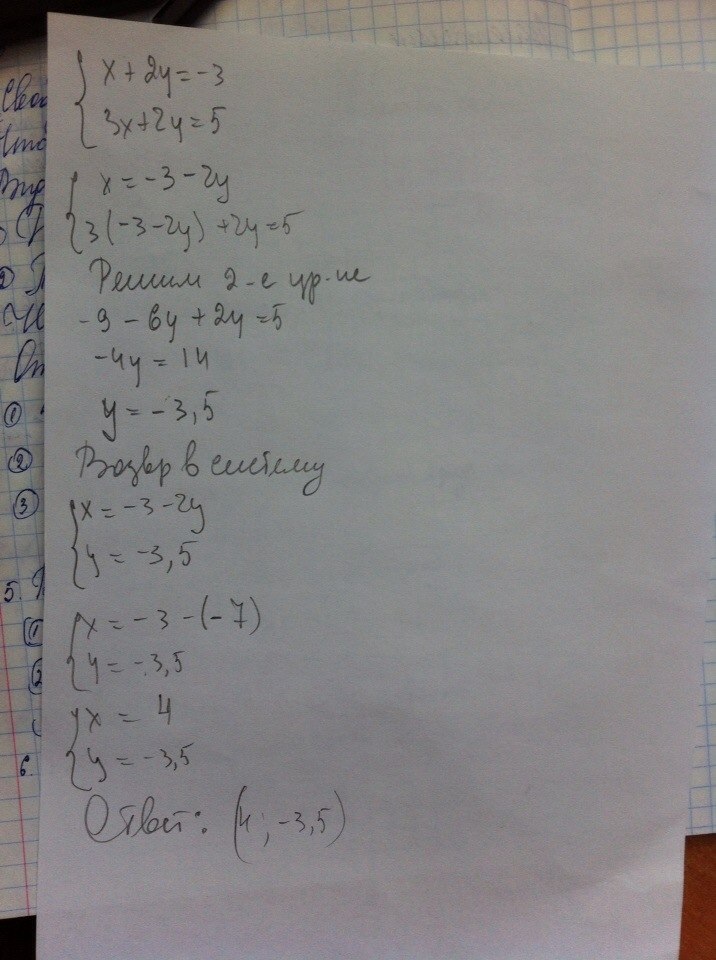 x + 2y = -3
3x + 2y = 5
x = -3 - 2y
3(-3-2y) + 2y = 5
Решим 2-е ур-ие
-9 - 6y + 2y = 5
-4y = 14
y = -3,5
Возвр в систему
x = -3 - 2y
y = -3,5
x = -3 - (-7)
y = -3,5
x = 4
y = -3,5
Ответ: (4; -3,5)
①
②
③
5.
6.